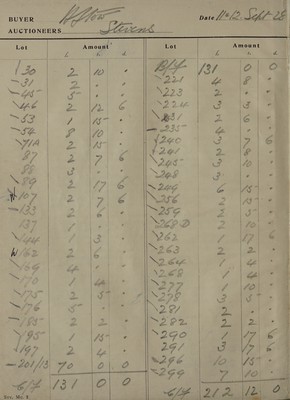 BUYER Stow Date 11 & 12 Sept 28
AUCTIONEERS Stevens
Lot Amount Lot Amount
£ s. d. £ s. d.
30 2 10 •
31 2 • •
45 5 • •
46 2 12 6
53 1 15 •
54 8 10 •
71A 2 15 •
87 2 7 6
88 3 • •
89 2 17 6
107 2 7 6
133 2 6 •
137 1 • •
144 1 3 •
162 2 6 •
169 4 • •
170 1 4 •
175 2 5 •
176 5 • •
185 2 2 •
195 1 15 •
197 2 4 •
201/13 70 0 0
C/f 131 0 0
B/f 131 0 0
221 4 8 •
223 2 • •
224 3 3 •
231 2 6 •
235 4 • •
240 3 7 6
241 2 8 •
245 3 10 •
248 3 • •
249 6 15 •
256 2 15 •
259 2 5 •
268D 2 10 •
262 1 17 6
263 2 2 •
264 1 4 •
268 1 4 •
277 1 10 •
278 3 5 •
281 2 • •
282 2 2 •
290 1 17 6
291 3 17 6
296 10 15 •
299 7 10 •
C/f 212 12 0